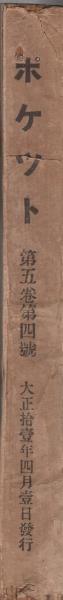 ポケット
第五卷第四號
大正拾壹年四月壹日發行